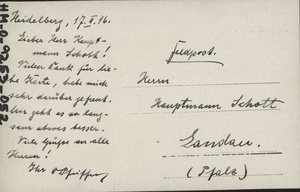 Heidelberg, 17.II.16.
Lieber Herr Haupt-
mann Schott!
Vielen Dank für lie-
be Karte, habe mich
sehr darüber gefreut.
geht es so lang-
sam etwas besser.
Viele Grüsse an alle
Herren!
Ihr
Feldpost.
Herrn
Hauptmann Schott
Landau.
(Pfalz)